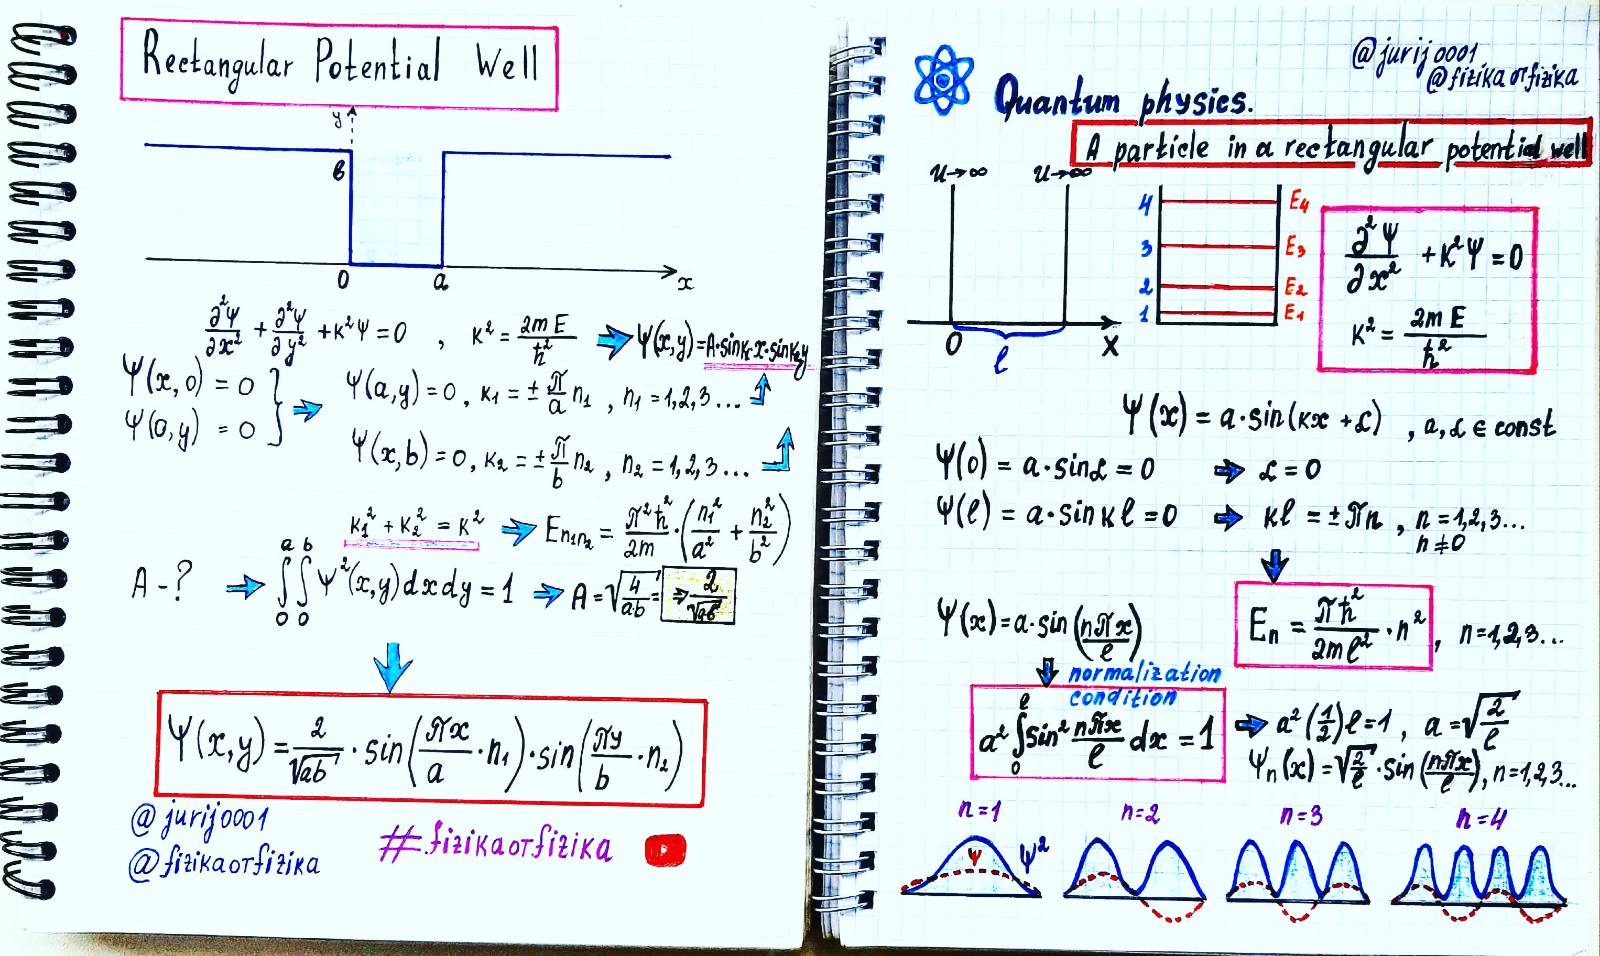 Rectangular Potential Well
y
в
0 a x
∂²Ψ/∂x² + ∂²Ψ/∂y² + к²Ψ = 0 , к² = 2mE/ħ² ⇒ Ψ(x,y)=A·sinк₁x·sinк₂y
Ψ(x,0) = 0
Ψ(0,y) = 0
Ψ(a,y) = 0, к₁ = ± π/a n₁ , n₁ = 1,2,3...
Ψ(x,b) = 0, к₂ = ± π/b n₂ , n₂ = 1,2,3...
к₁² + к₂² = к² ⇒ En₁n₂ = π²ħ²/2m · (n₁²/a² + n₂²/b²)
A - ? ⇒ ∫₀ᵃ∫₀ᵇ Ψ²(x,y)dxdy = 1 ⇒ A = √(4/ab) = ⇒ 2/√ab
Ψ(x,y) = 2/√ab · sin(πx/a · n₁) · sin(πy/b · n₂)
@jurij0001
@fizikaотfizika
#fizikaотfizika
@jurij0001
@fizikaотfizika
Quantum physics.
A particle in a rectangular potential well
u→∞ u→∞
0 l x
4 E₄
3 E₃
2 E₂
1 E₁
∂²Ψ/∂x² + к²Ψ = 0
к² = 2mE/ħ²
Ψ(x) = a·sin(кx + α) , a, α ∈ const
Ψ(0) = a·sinα = 0 ⇒ α = 0
Ψ(l) = a·sinкl = 0 ⇒ кl = ±πn , n = 1,2,3...
n ≠ 0
Eₙ = πħ²/2ml² · n² , n=1,2,3...
Ψ(x) = a·sin(nπx/l)
normalization
condition
a² ∫₀ˡ sin² nπx/l dx = 1 ⇒ a²(1/2)l = 1 , a = √(2/l)
Ψₙ(x) = √(2/l) · sin(nπx/l), n=1,2,3...
n=1 n=2 n=3 n=4
Ψ Ψ²